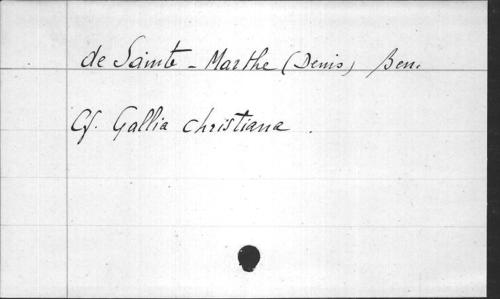 de Sainte - Marthe (Denis) Ben.
Cf. Gallia christiana .